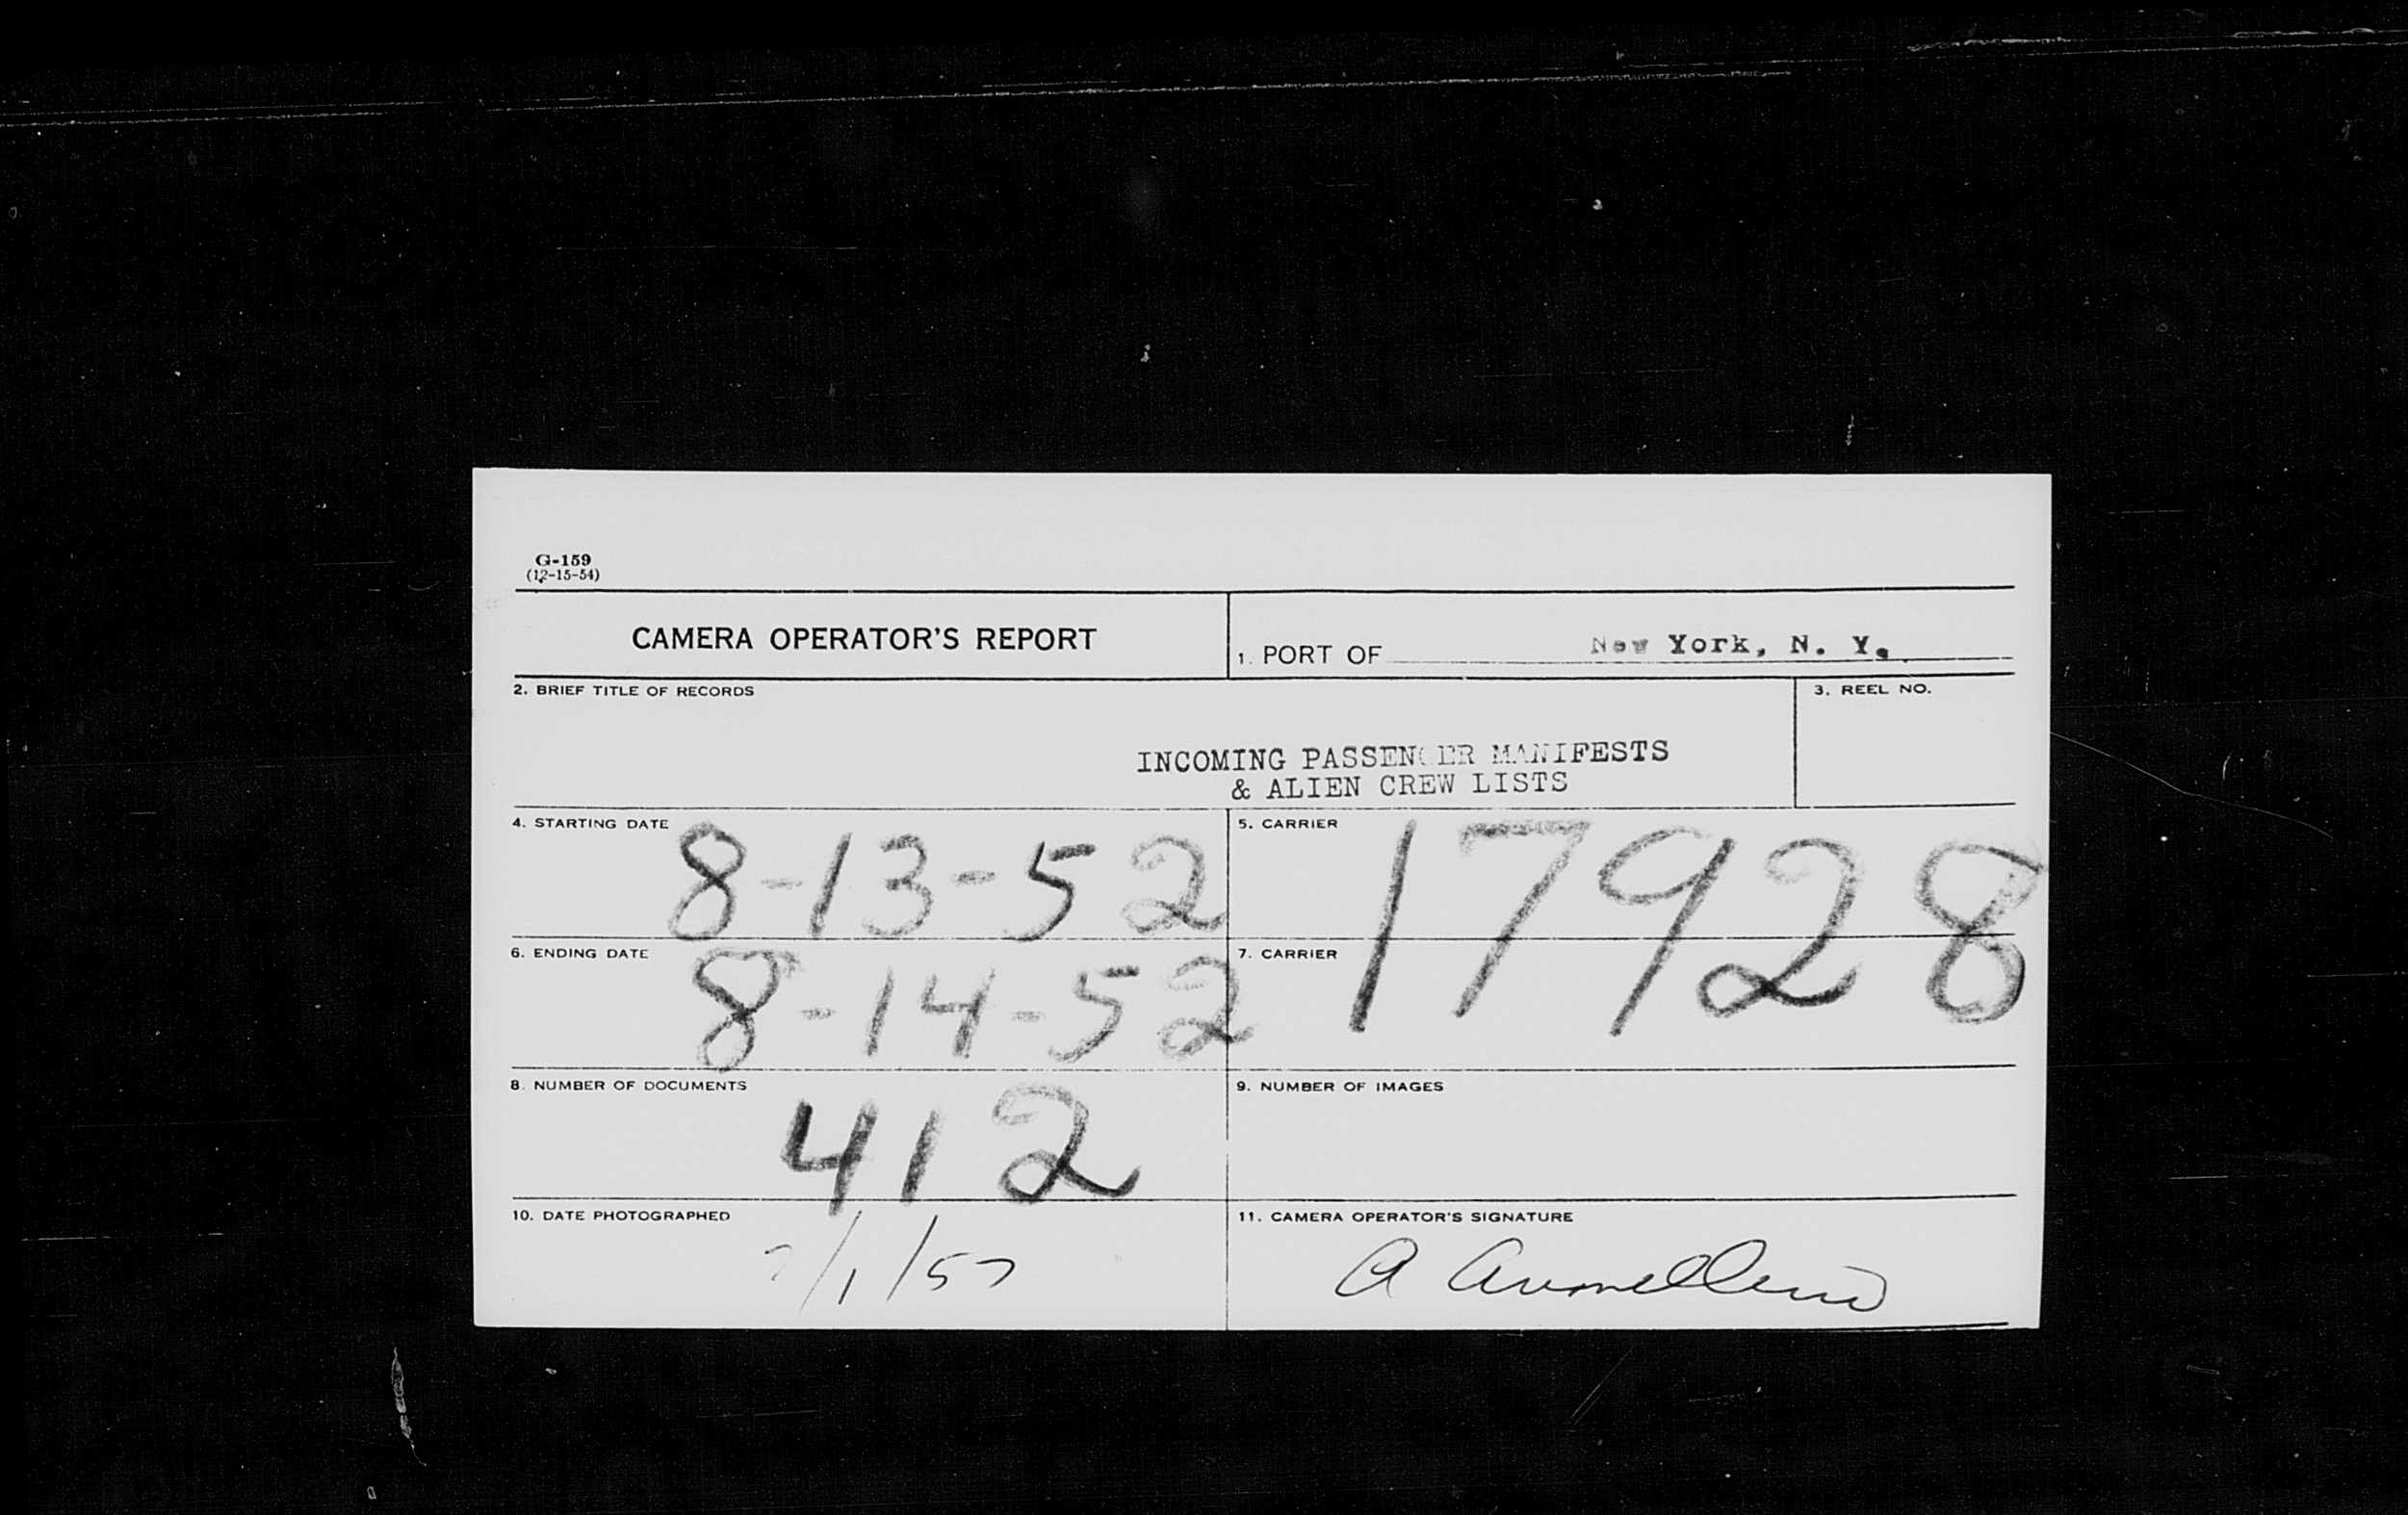 G-159
(12-15-54)
CAMERA OPERATOR'S REPORT
1. PORT OF New York, N. Y.
2. BRIEF TITLE OF RECORDS
3. REEL NO.
INCOMING PASSENGER MANIFESTS
& ALIEN CREW LISTS
4. STARTING DATE 8-13-52
5. CARRIER 17928
6. ENDING DATE 8-14-52
7. CARRIER
8. NUMBER OF DOCUMENTS 412
9. NUMBER OF IMAGES
10. DATE PHOTOGRAPHED 7/1/57
11. CAMERA OPERATOR'S SIGNATURE
A